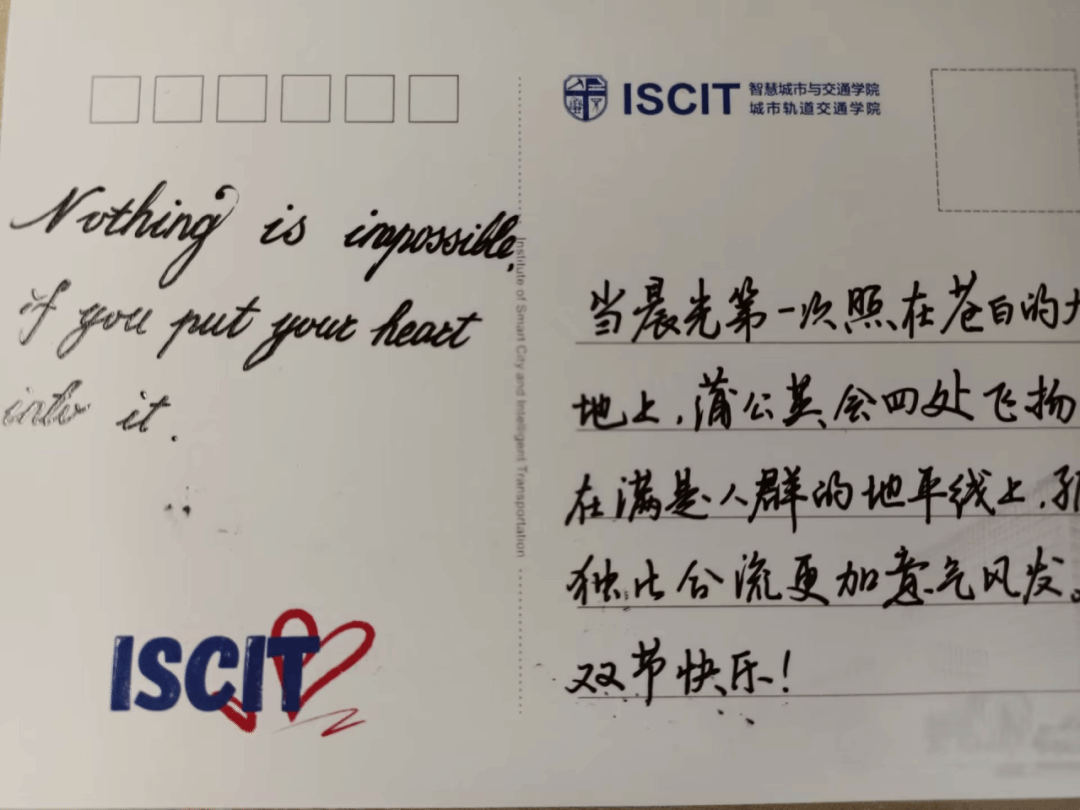 Nothing is impossible,
if you put your heart
into it.
ISCIT
Institute of Smart City and Intelligent Transportation
ISCIT
智慧城市与交通学院
城市轨道交通学院
当晨光第一次照在苍白的大
地上，蒲公英会四处飞扬
在满是人群的地平线上，孤
独比合流更加意气风发。
双节快乐！